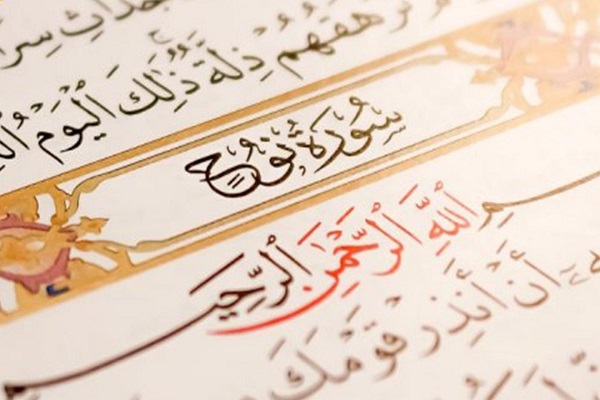 جْدَاثِ سِرَا
هَقُهُمْ ذِلَّةٌ ذَٰلِكَ ٱلْيَوْمُ
سُورَةُ نُوحٍ
سْمِ ٱللَّهِ ٱلرَّحْمَٰنِ ٱلرَّحِيمِ
أَنْ أَنذِرْ قَوْمَكَ